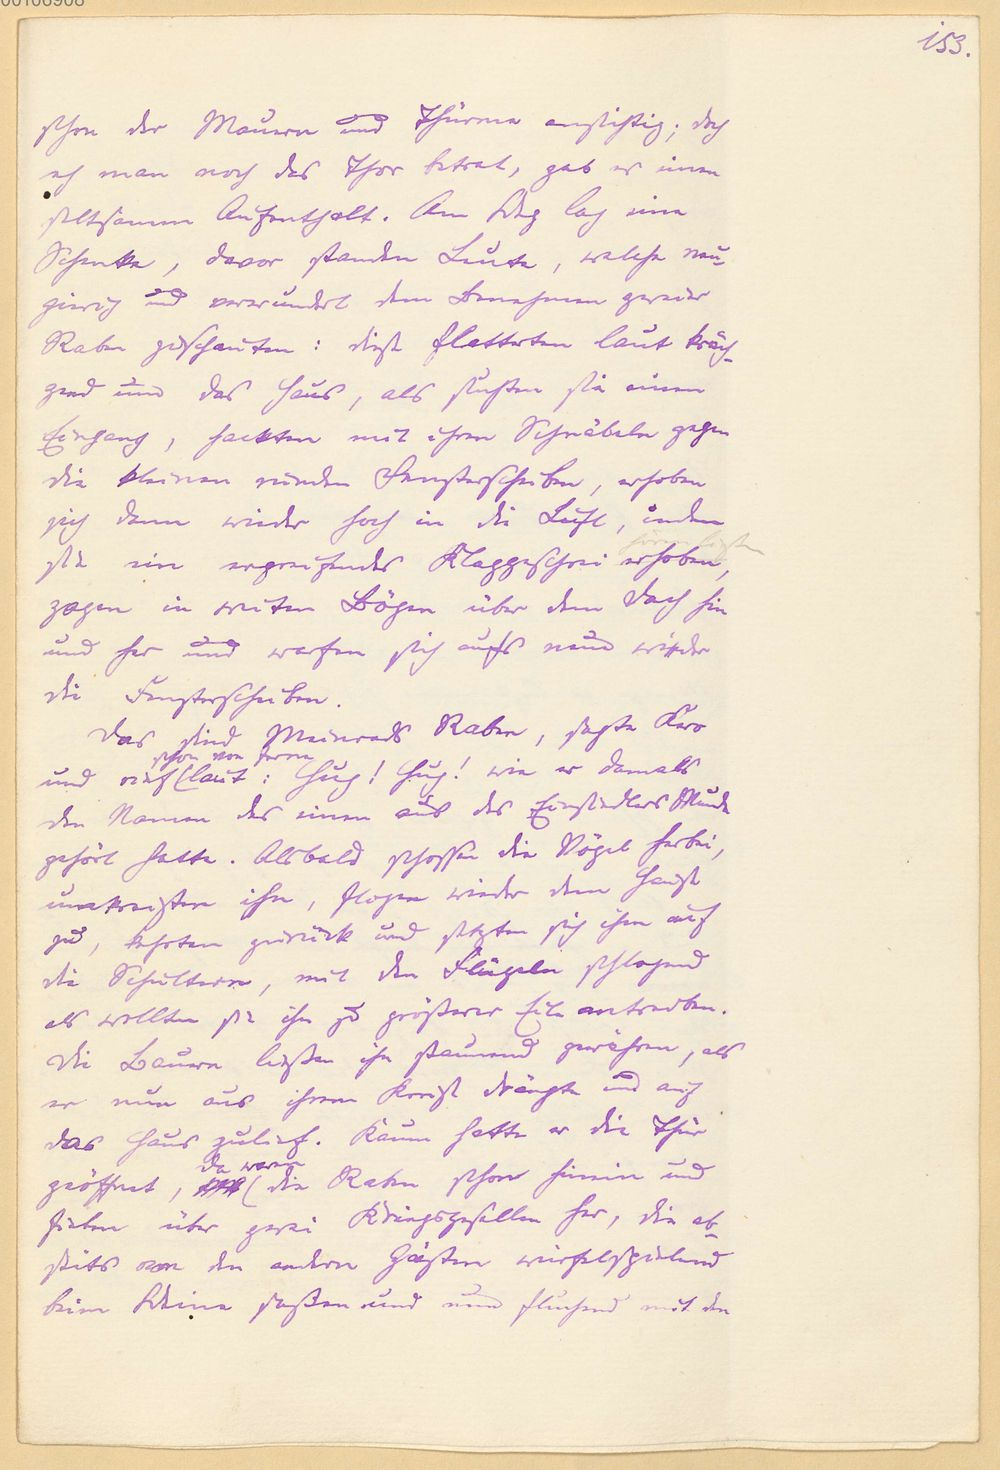 153.
schon der Mauern und Thürme ansichtig; doch
eh man noch das Thor betrat, gab es einen
seltsamen Aufenthalt. Am Weg lag eine
Schenke, davor standen Leute, welche neu-
gierig und verwundert dem Benehmen zweier
Raben zuschauten: diese flatterten laut kräch-
zend um das Haus, als suchten sie einen
Eingang, hackten mit ihren Schnäbeln gegen
die kleinen runden Fensterscheiben, erhoben
sich dann wieder hoch in die Luft, indem
sie ein ergreifendes Klaggeschrei erhoben,
zogen in weiten Bögen über dem Dach hin
und her und warfen sich aufs neue wider
die Fensterscheiben.
Das sind Meinrads Raben, sagte Kero
schon von ferne
und rief laut: Hug! Hug! wie er damals
den Namen des einen aus des Einsiedlers Munde
gehört hatte. Alsbald schossen die Vögel herbei,
umkreisten ihn, flogen wieder dem Hause
zu, kehrten zurück und setzten sich ihm auf
die Schultern, mit den Flügeln schlagend
als wollten sie ihn zu größerer Eile antreiben.
Die Bauern ließen ihn staunend gewähren, als
er nun aus ihrem Kreise drängte und auf
das Haus zulief. Kaum hatte er die Thür
da waren
geöffnet, die Raben schon hinein und
fielen über zwei Kriegsgesellen her, die ab-
seits von den andern Gästen würfelspielend
beim Weine saßen und nun fluchend mit den